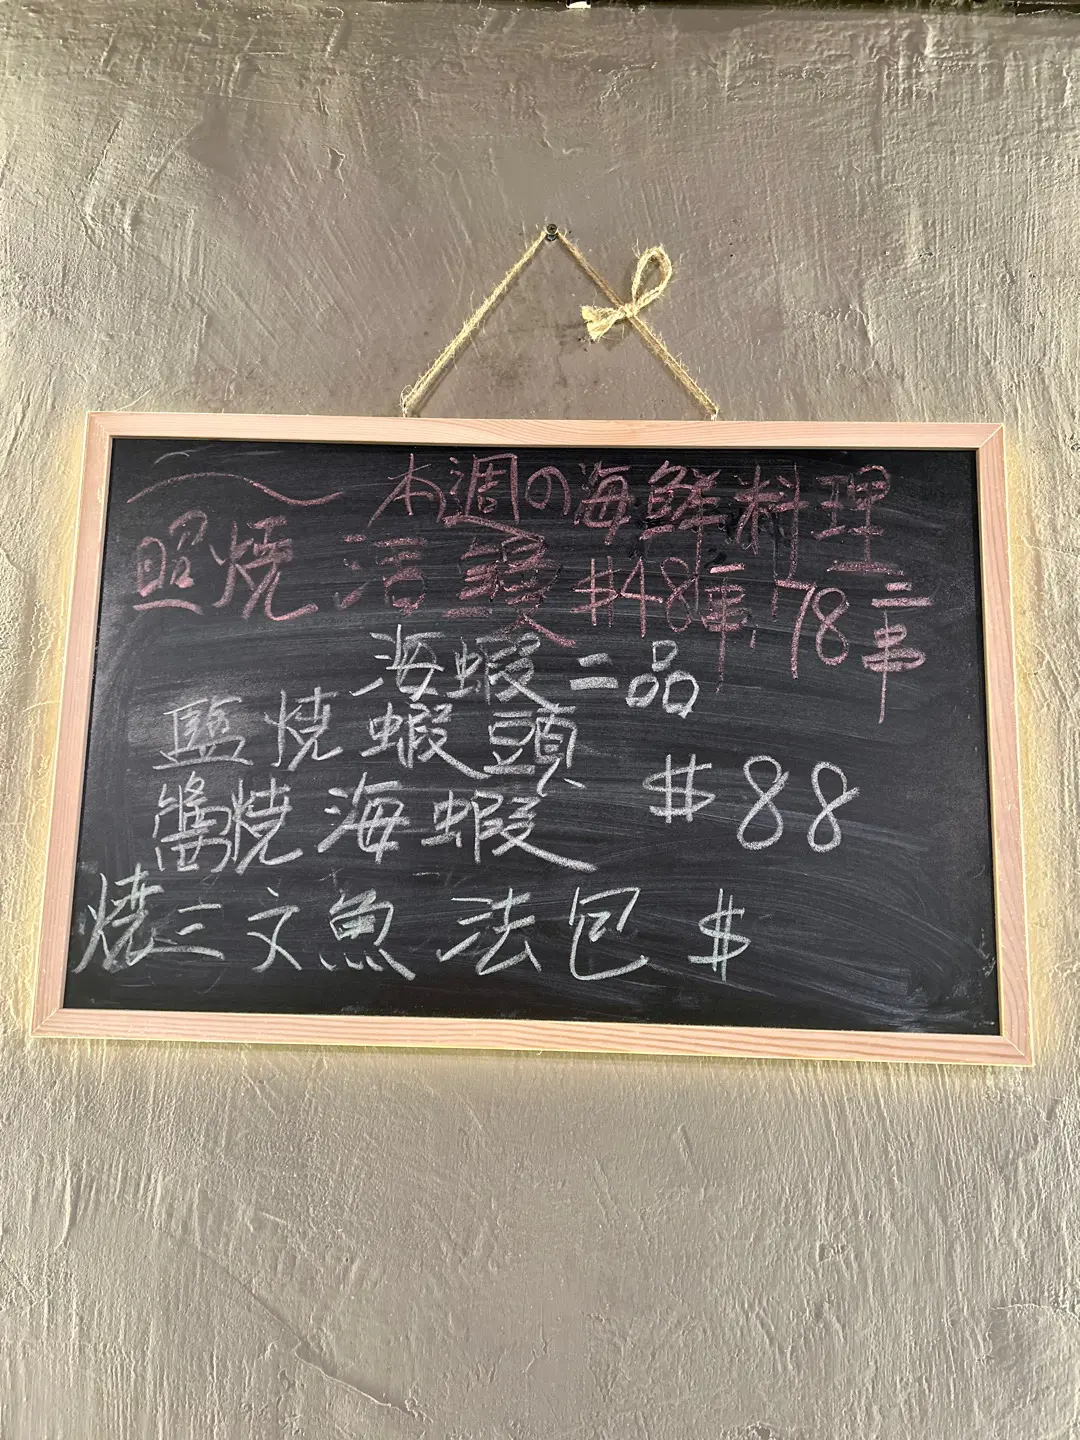 本週の海鮮料理
照燒活鰻 $48一串,78二串
海蝦二品
鹽燒蝦頭
醬燒海蝦 $88
燒三文魚法包 $